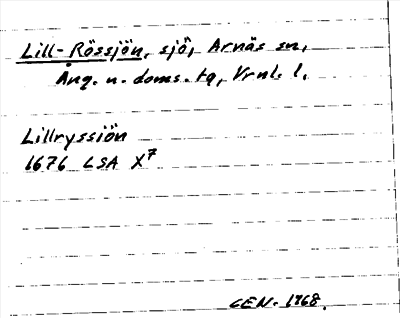 Lill-Rössjön, sjö, Arnäs sn,
Ång. n. doms. tg, Vrnl. l.
Lillryssiön
1676 LSA X7
CEN. 1968.